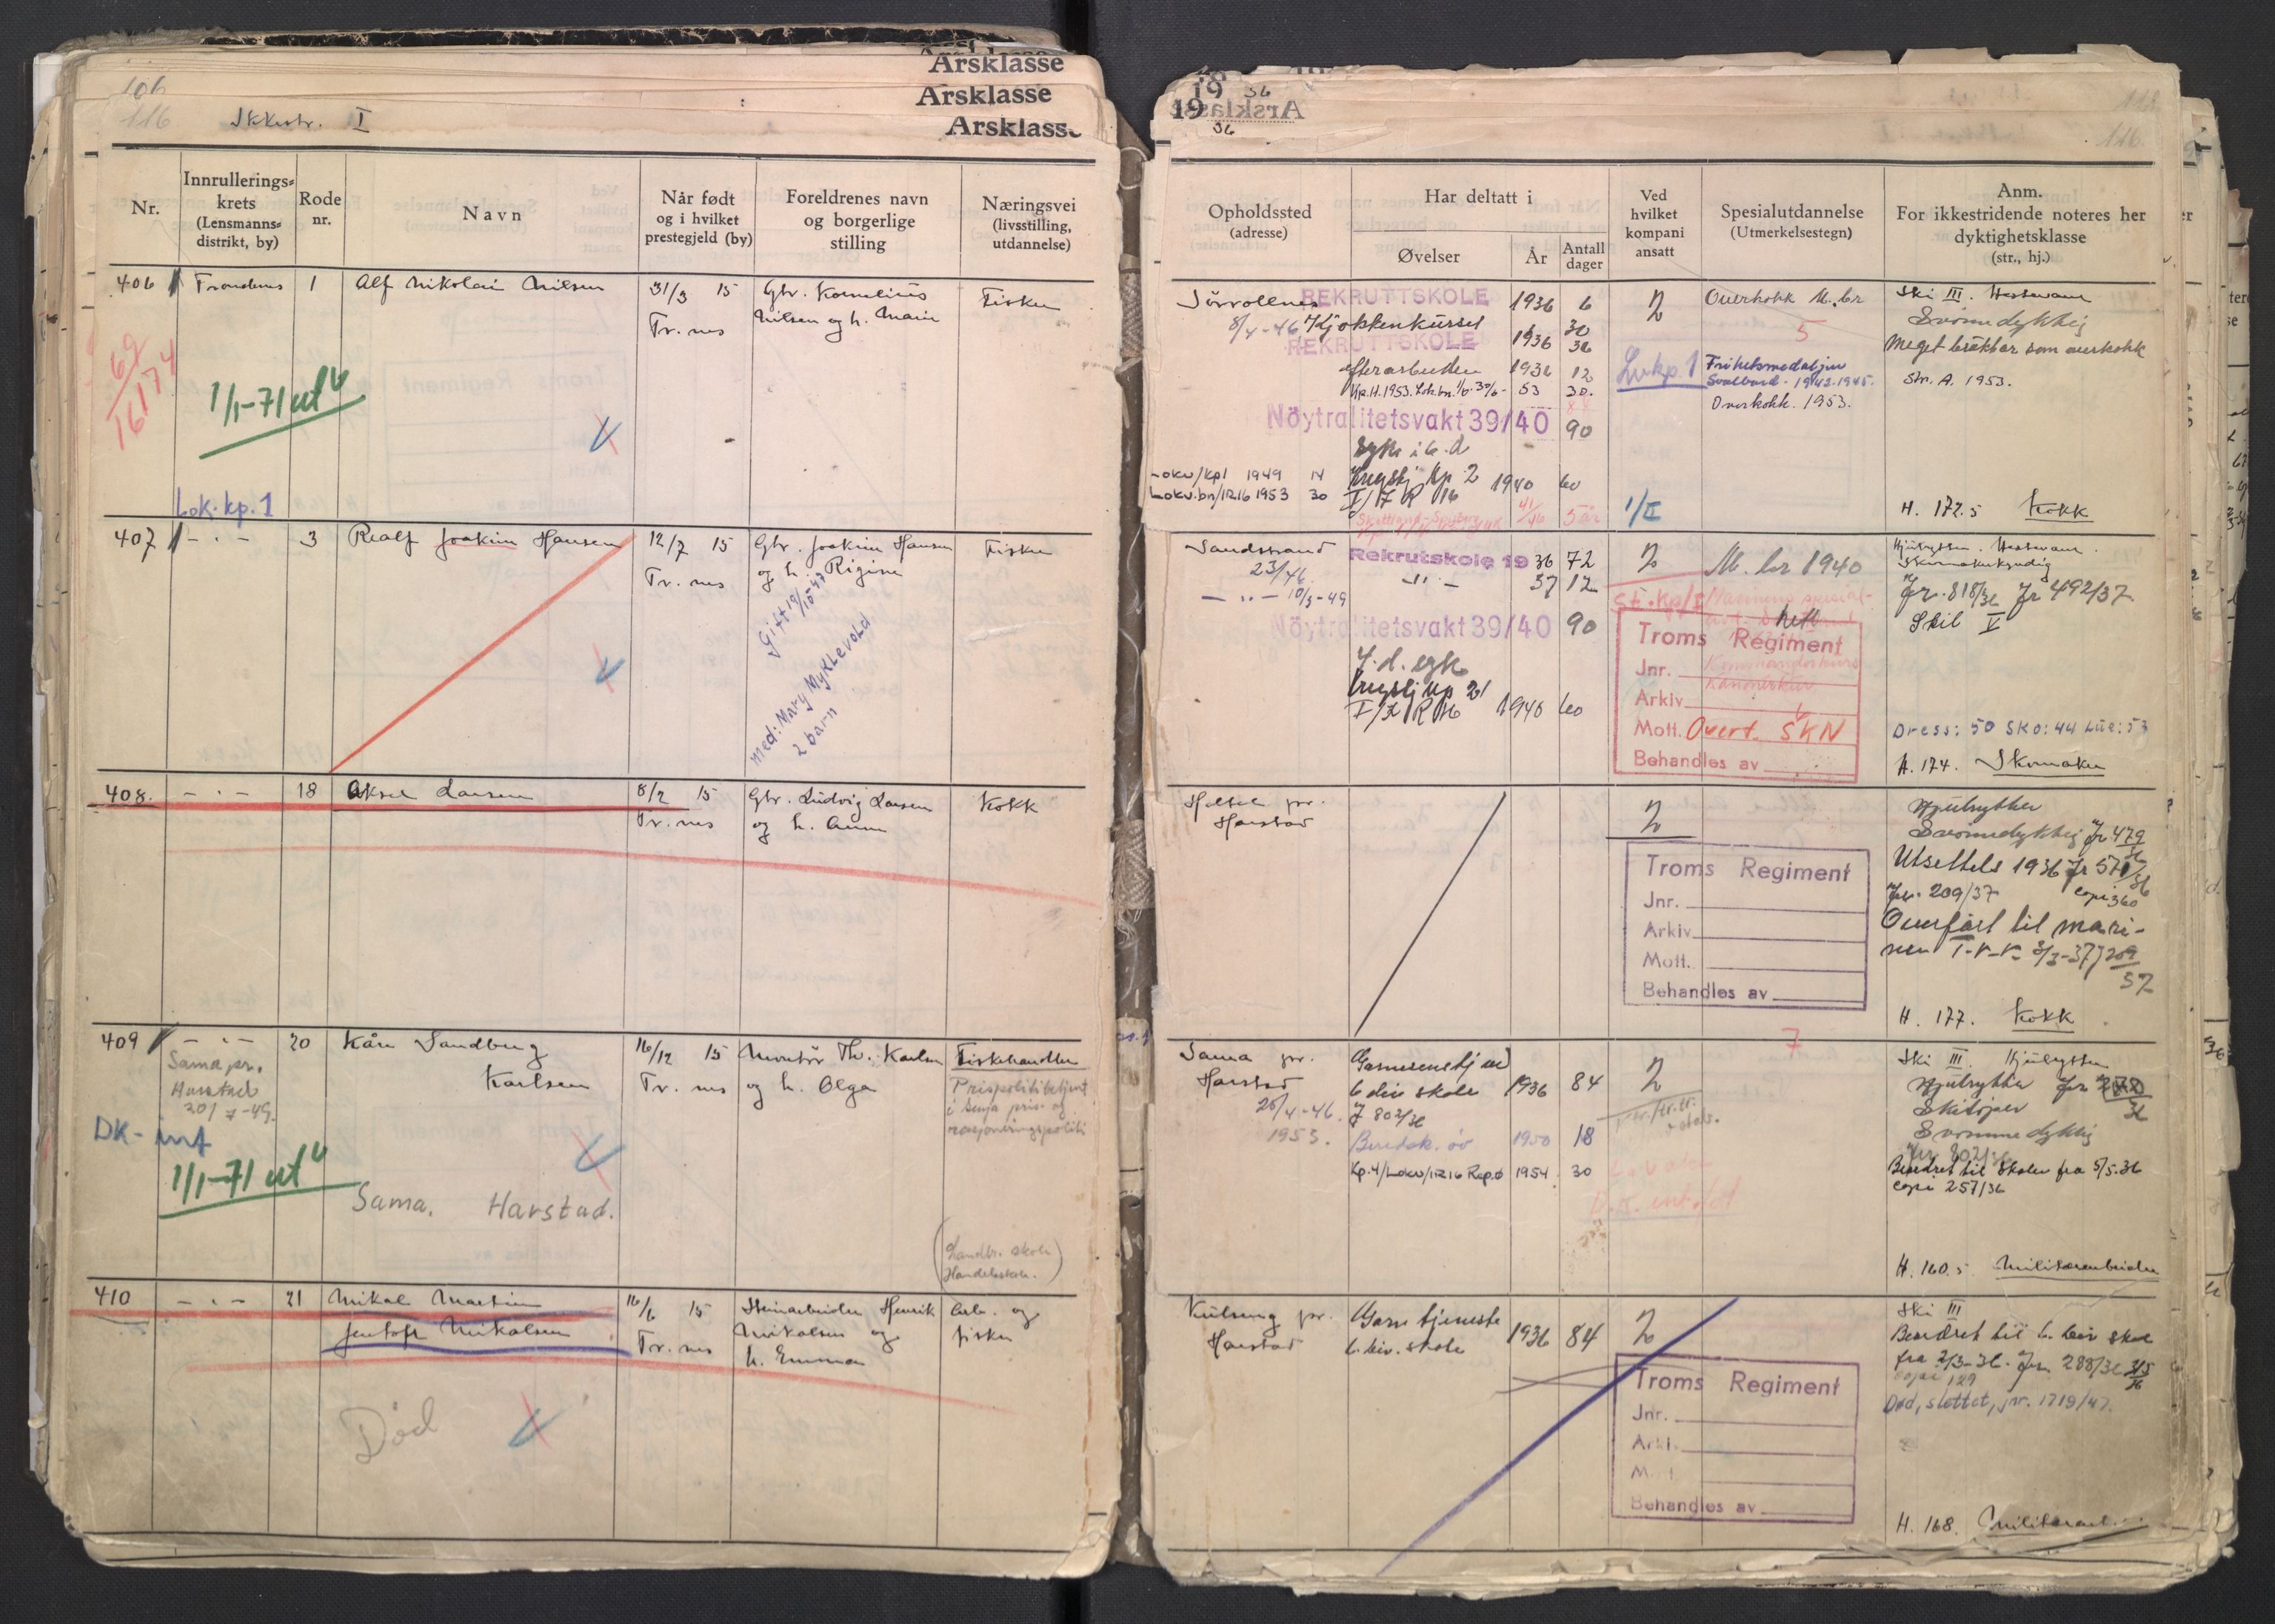 Årsklasse
Årsklasse
Årsklasse
106
116
Ikkestr. I
Nr.
Innrullerings-
krets
(Lensmanns-
distrikt, by)
Rode
nr.
Navn
Når født
og i hvilket
prestegjeld (by)
Foreldrenes navn
og borgerlige
stilling
Næringsvei
(livsstilling,
utdannelse)
406
Trondenes
1
Alf Nikolai Nilsen
31/3 15
Tr.nes
Gbr. Kornelius
Nilsen og h. Marie
Fisker
69
16174
1/1-71 ut
Lok.kp.1
407
- " -
3
Realf Joakim Hansen
12/7 15
Tr.nes
Gbr. Joakim Hansen
og h. Rigine
Fisker
Gift 19/10-47
med: Mary Myklevold
2 barn
408.
- " -
18
Aksel Larsen
8/2 15
Tr.nes
Gbr. Ludvig Larsen
og h. Anna
Kokk
409
- " -
20
Kåre Sandberg
Karlsen
16/12 15
Tr.nes
Montør Th. Karlsen
og h. Olga
Fiskehandler
Prispolitibetjent
i Senja pris- og
rasjoneringspoliti
Sama pr.
Harstad
20/7-49.
DK-inf
1/1-71 ut
Sama. Harstad.
(Landbr. skole
Handelsskole.)
410
- " -
21
Mikal Martin
Jentoft Mikalsen
16/6 15
Tr.nes
Stenarbeider Henrik
Mikalsen og
h. Emma
Arb. og
fisker
Død
19 36
19
36
116.
Opholdssted
(adresse)
Har deltatt i
Øvelser
År
Antall
dager
Ved
hvilket
kompani
ansatt
Spesialutdannelse
(Utmerkelsestegn)
Anm.
For ikkestridende noteres her
dyktighetsklasse
(str., hj.)
Sørrollnes
8/4-46
REKRUTTSKOLE 1936 6
Kjøkkenkurset 30
REKRUTTSKOLE 1936 36
efterarbeiden 1936 12
53 30.
Nöytralitetsvakt 39/40 90
syk i 6 d
Lokv/kp1 1949 14
Lokv.bn/IR16 1953 30
Krigstj kp 2 1940 60
I/IR 16
5 år
2
Lvkp. 1
1/I
Overkokk M. br
5
Frihetsmedaljen
Svalbard - 1942-1945.
Overkokk. 1953.
Ski III. Hestevant
Svømmedyktig
Meget brukbar som overkokk
Str. A. 1953.
H. 172.5 Kokk
Sandstrand
23/46
- " - 10/3-49
Rekrutskole 19 36 72
- " - 37 12
Nöytralitetsvakt 39/40 90
4. d. syk
Krigstj kp 2
I/IR 16 1940 60
2
St.kp/I
M. br 1940
Troms Regiment
Jnr.
Arkiv
Mott. Overt. SKN
Behandles av
Hjulrytter. Hestevant.
Skomakerkyndig
Jr. 818/36 Jr 492/37
Skil V
Dress: 50 Sko: 44 Lue: 53
H. 174. Skomaker
Holtet pr.
Harstad
2
Troms Regiment
Jnr.
Arkiv
Mott.
Behandles av
Hjulrytter
Svømmedyktig Jr 479/36
Utsettelse 1936 Jr 571/36
Jr. 209/37 copi 360
Overført til mari-
nen
H. 177. Kokk
Sama pr.
Harstad
26/4-46.
1953.
Garnisonstj ved
6 div skole 1936 84
J 802/36
Beredsk. öv 1950 18
Kp.4/Lokv/IR16 Rep.ø 1954 30
2
7
Ski III Hjulrytter
Hjulrytter
Skiløper
Svømmedyktig
Jr. 802/36
Beordret til Skolen fra 5/5.36
copi 257/36
H. 160.5 Militærarbeider
Kulseng pr.
Harstad
Garn tjeneste
6. div. skole 1936 84
2
Troms Regiment
Jnr.
Arkiv
Mott.
Behandles av
Ski III
Beordret til 6. div skole
fra 2/3-36. Jr. 288/36
copi 129
Død, slettet, jnr. 1719/47.
H. 168. Militærarb.